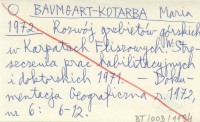 BAUMGART-KOTARBA Maria
1972 Rozwój grzbietów górskich
w Karpatach Fliszowych. W: Stre-
szczenia prac habilitacyjnych
i doktorskich 1971. - Doku-
mentacja Geograficzna, r. 1972,
nr 6: 6-12.